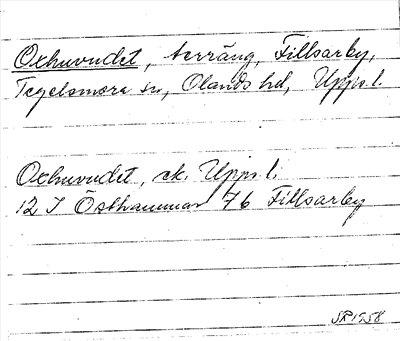 Oxhuvudet, terräng, Fillsarby,
Tegelsmora sn, Olands hd, Upps. l.
Oxhuvudet, ek. Upps. l.
12 I Östhammar 76 Fillsarby
SR 1958